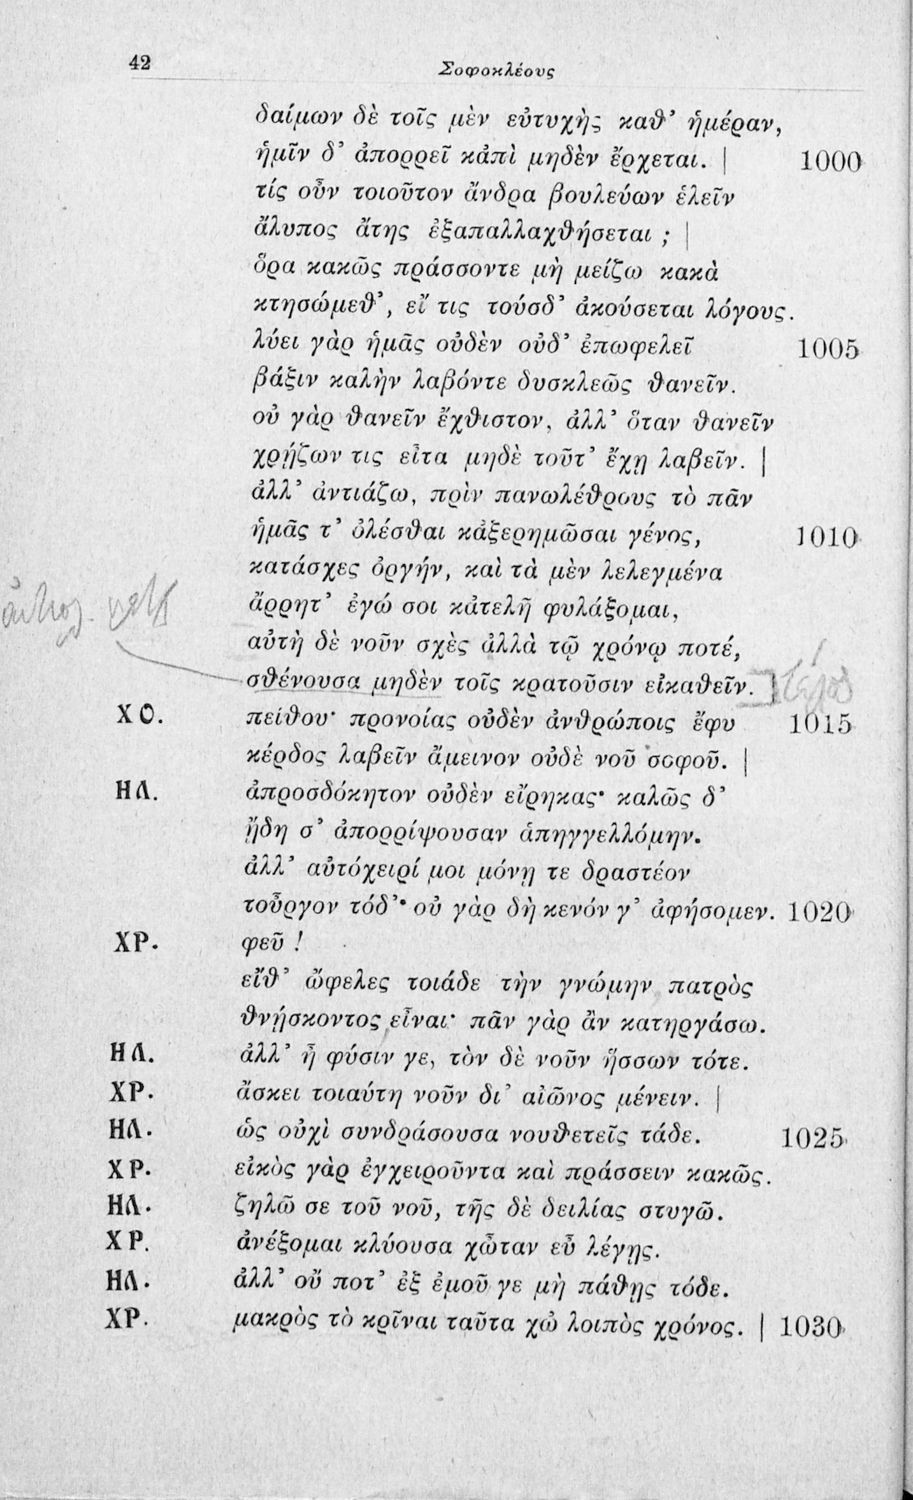 42
Σοφοκλέους
δαίμων δὲ τοῖς μὲν εὐτυχὴς καθ’ ἡμέραν,
ἡμῖν δ’ ἀπορρεῖ κἀπὶ μηδὲν ἔρχεται. | 1000
τίς οὖν τοιοῦτον ἄνδρα βουλεύων ἑλεῖν
ἄλυπος ἄτης ἐξαπαλλαχθήσεται ; |
ὅρα κακῶς πράσσοντε μὴ μείζω κακὰ
κτησώμεθ’, εἴ τις τούσδ’ ἀκούσεται λόγους.
λύει γὰρ ἡμᾶς οὐδὲν οὐδ’ ἐπωφελεῖ 1005
βάξιν καλὴν λαβόντε δυσκλεῶς θανεῖν.
οὐ γὰρ θανεῖν ἔχθιστον, ἀλλ’ ὅταν θανεῖν
χρῄζων τις εἶτα μηδὲ τοῦτ’ ἔχῃ λαβεῖν. |
ἀλλ’ ἀντιάζω, πρὶν πανωλέθρους τὸ πᾶν
ἡμᾶς τ’ ὀλέσθαι κἀξερημῶσαι γένος, 1010
κατάσχες ὀργήν, καὶ τὰ μὲν λελεγμένα
ἄρρητ’ ἐγώ σοι κἀτελῆ φυλάξομαι,
αὐτὴ δὲ νοῦν σχὲς ἀλλὰ τῷ χρόνῳ ποτέ,
σθένουσα μηδὲν τοῖς κρατοῦσιν εἰκαθεῖν. ] τέλος
ΧΟ. πείθου· προνοίας οὐδὲν ἀνθρώποις ἔφυ 1015
κέρδος λαβεῖν ἄμεινον οὐδὲ νοῦ σοφοῦ. |
ΗΛ. ἀπροσδόκητον οὐδὲν εἴρηκας· καλῶς δ’
ᾔδη σ’ ἀπορρίψουσαν ἁπηγγελλόμην.
ἀλλ’ αὐτόχειρί μοι μόνῃ τε δραστέον
τοὖργον τόδ’· οὐ γὰρ δὴ κενόν γ’ ἀφήσομεν. 1020
ΧΡ. φεῦ !
εἴθ’ ὤφελες τοιάδε τὴν γνώμην πατρὸς
θνῄσκοντος εἶναι· πᾶν γὰρ ἂν κατηργάσω.
ΗΛ. ἀλλ’ ἦ φύσιν γε, τὸν δὲ νοῦν ἥσσων τότε.
ΧΡ. ἄσκει τοιαύτη νοῦν δι’ αἰῶνος μένειν. |
ΗΛ. ὡς οὐχὶ συνδράσουσα νουθετεῖς τάδε. 1025
ΧΡ. εἰκὸς γὰρ ἐγχειροῦντα καὶ πράσσειν κακῶς.
ΗΛ. ζηλῶ σε τοῦ νοῦ, τῆς δὲ δειλίας στυγῶ.
ΧΡ. ἀνέξομαι κλύουσα χὦταν εὖ λέγῃς.
ΗΛ. ἀλλ’ οὔ ποτ’ ἐξ ἐμοῦ γε μὴ πάθῃς τόδε.
ΧΡ. μακρὸς τὸ κρῖναι ταῦτα χὠ λοιπὸς χρόνος. | 1030